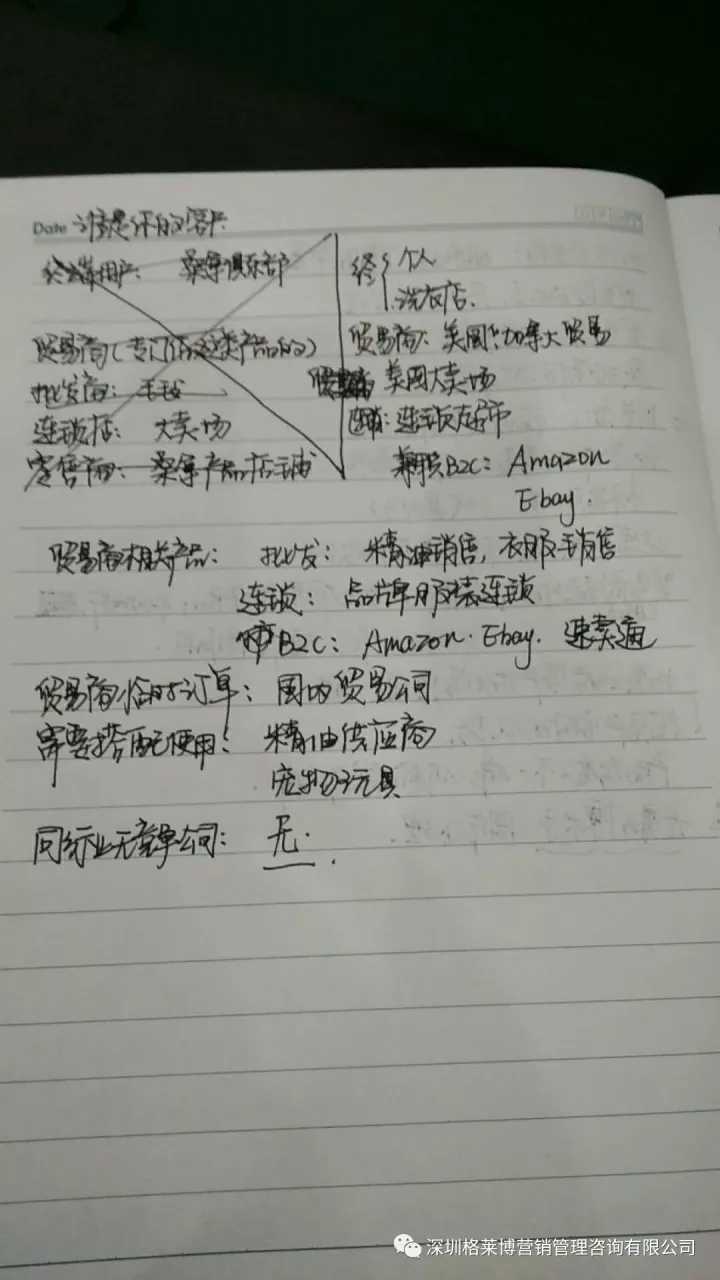 Date 谁是你的客户
终端用户: 桑拿俱乐部
贸易商(专门做这类产品的)
批发商: 毛毡
连锁店: 大卖场
零售商: 桑拿产品店铺
终 个人
洗衣店.
贸易商: 美国 加拿大贸易
美国大卖场
连锁: 连锁超市
B2C: Amazon
Ebay.
贸易商相关产品: 批发: 精油销售, 衣服销售
连锁: 品牌服装连锁
B2C: Amazon. Ebay. 速卖通
贸易商临时订单: 国内贸易公司
需要搭配使用: 精油供应商
宠物玩具
同行业无竞争公司: 无.
深圳格莱博营销管理咨询有限公司